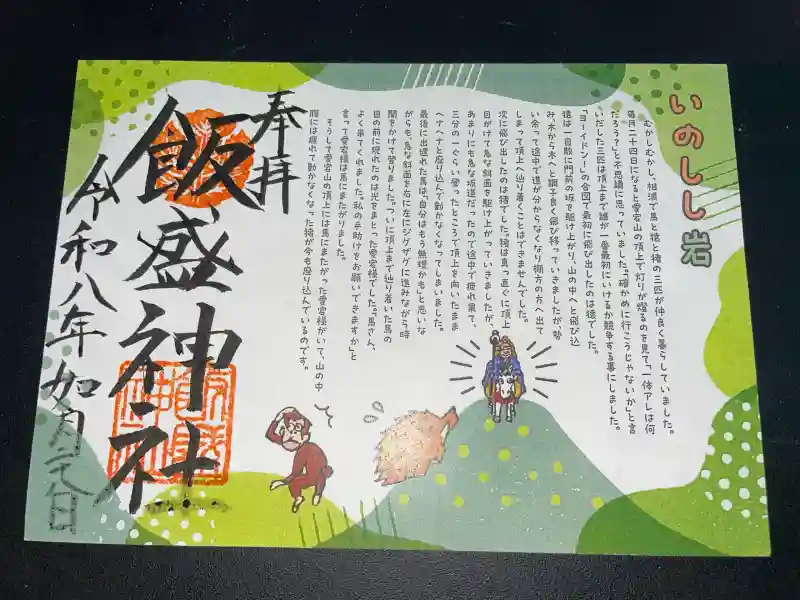 いのしし岩
むかしむかし、相浦で馬と猿と猪の三匹が仲良く暮らしていました。
毎月二十四日になると愛宕山の頂上で灯りが燈るのを見て「一体アレは何
だろう?」と不思議に思っていました。「確かめに行こうじゃないか」と言
いだした三匹は頂上まで誰が一番最初にいけるか競争する事にしました。
「ヨーイドン!」の合図で最初に飛び出したのは猿でした。
猿は一目散に門前の坂を駆け上がり、山の中へと飛び込
み、木から木へと調子良く飛び移っていきましたが、勢
い余って途中で道が分からなくなり棚方の方へ出て
しまって頂上へ辿り着くことはできませんでした。
次に飛び出したのは猪でした。猪は真っ直ぐに頂上
目がけて急な斜面を駆け上がっていきましたが、
あまりにも急な坂道だったので途中で疲れ果て、
三分の一ぐらい登ったところで頂上を向いたまま
ヘナヘナと座り込んで動かなくなってしまいました。
最後に出遅れた馬は「自分はもう無理かも」と思いな
がらも、急な斜面を右に左にジグザグに進みながら時
間をかけて登りました。ついに頂上まで辿り着いた馬の
目の前に現れたのは光をまとった愛宕様でした。「馬さん、
よく来てくれました。私の手助けをお願いできますか」と
言って愛宕様は馬にまたがりました。
そうして愛宕山の頂上には馬にまたがった愛宕様がいて、山の中
腹には疲れて動かなくなった猪が今も座り込んでいるのです。
奉拝
飯盛神社
令和八年如月元日